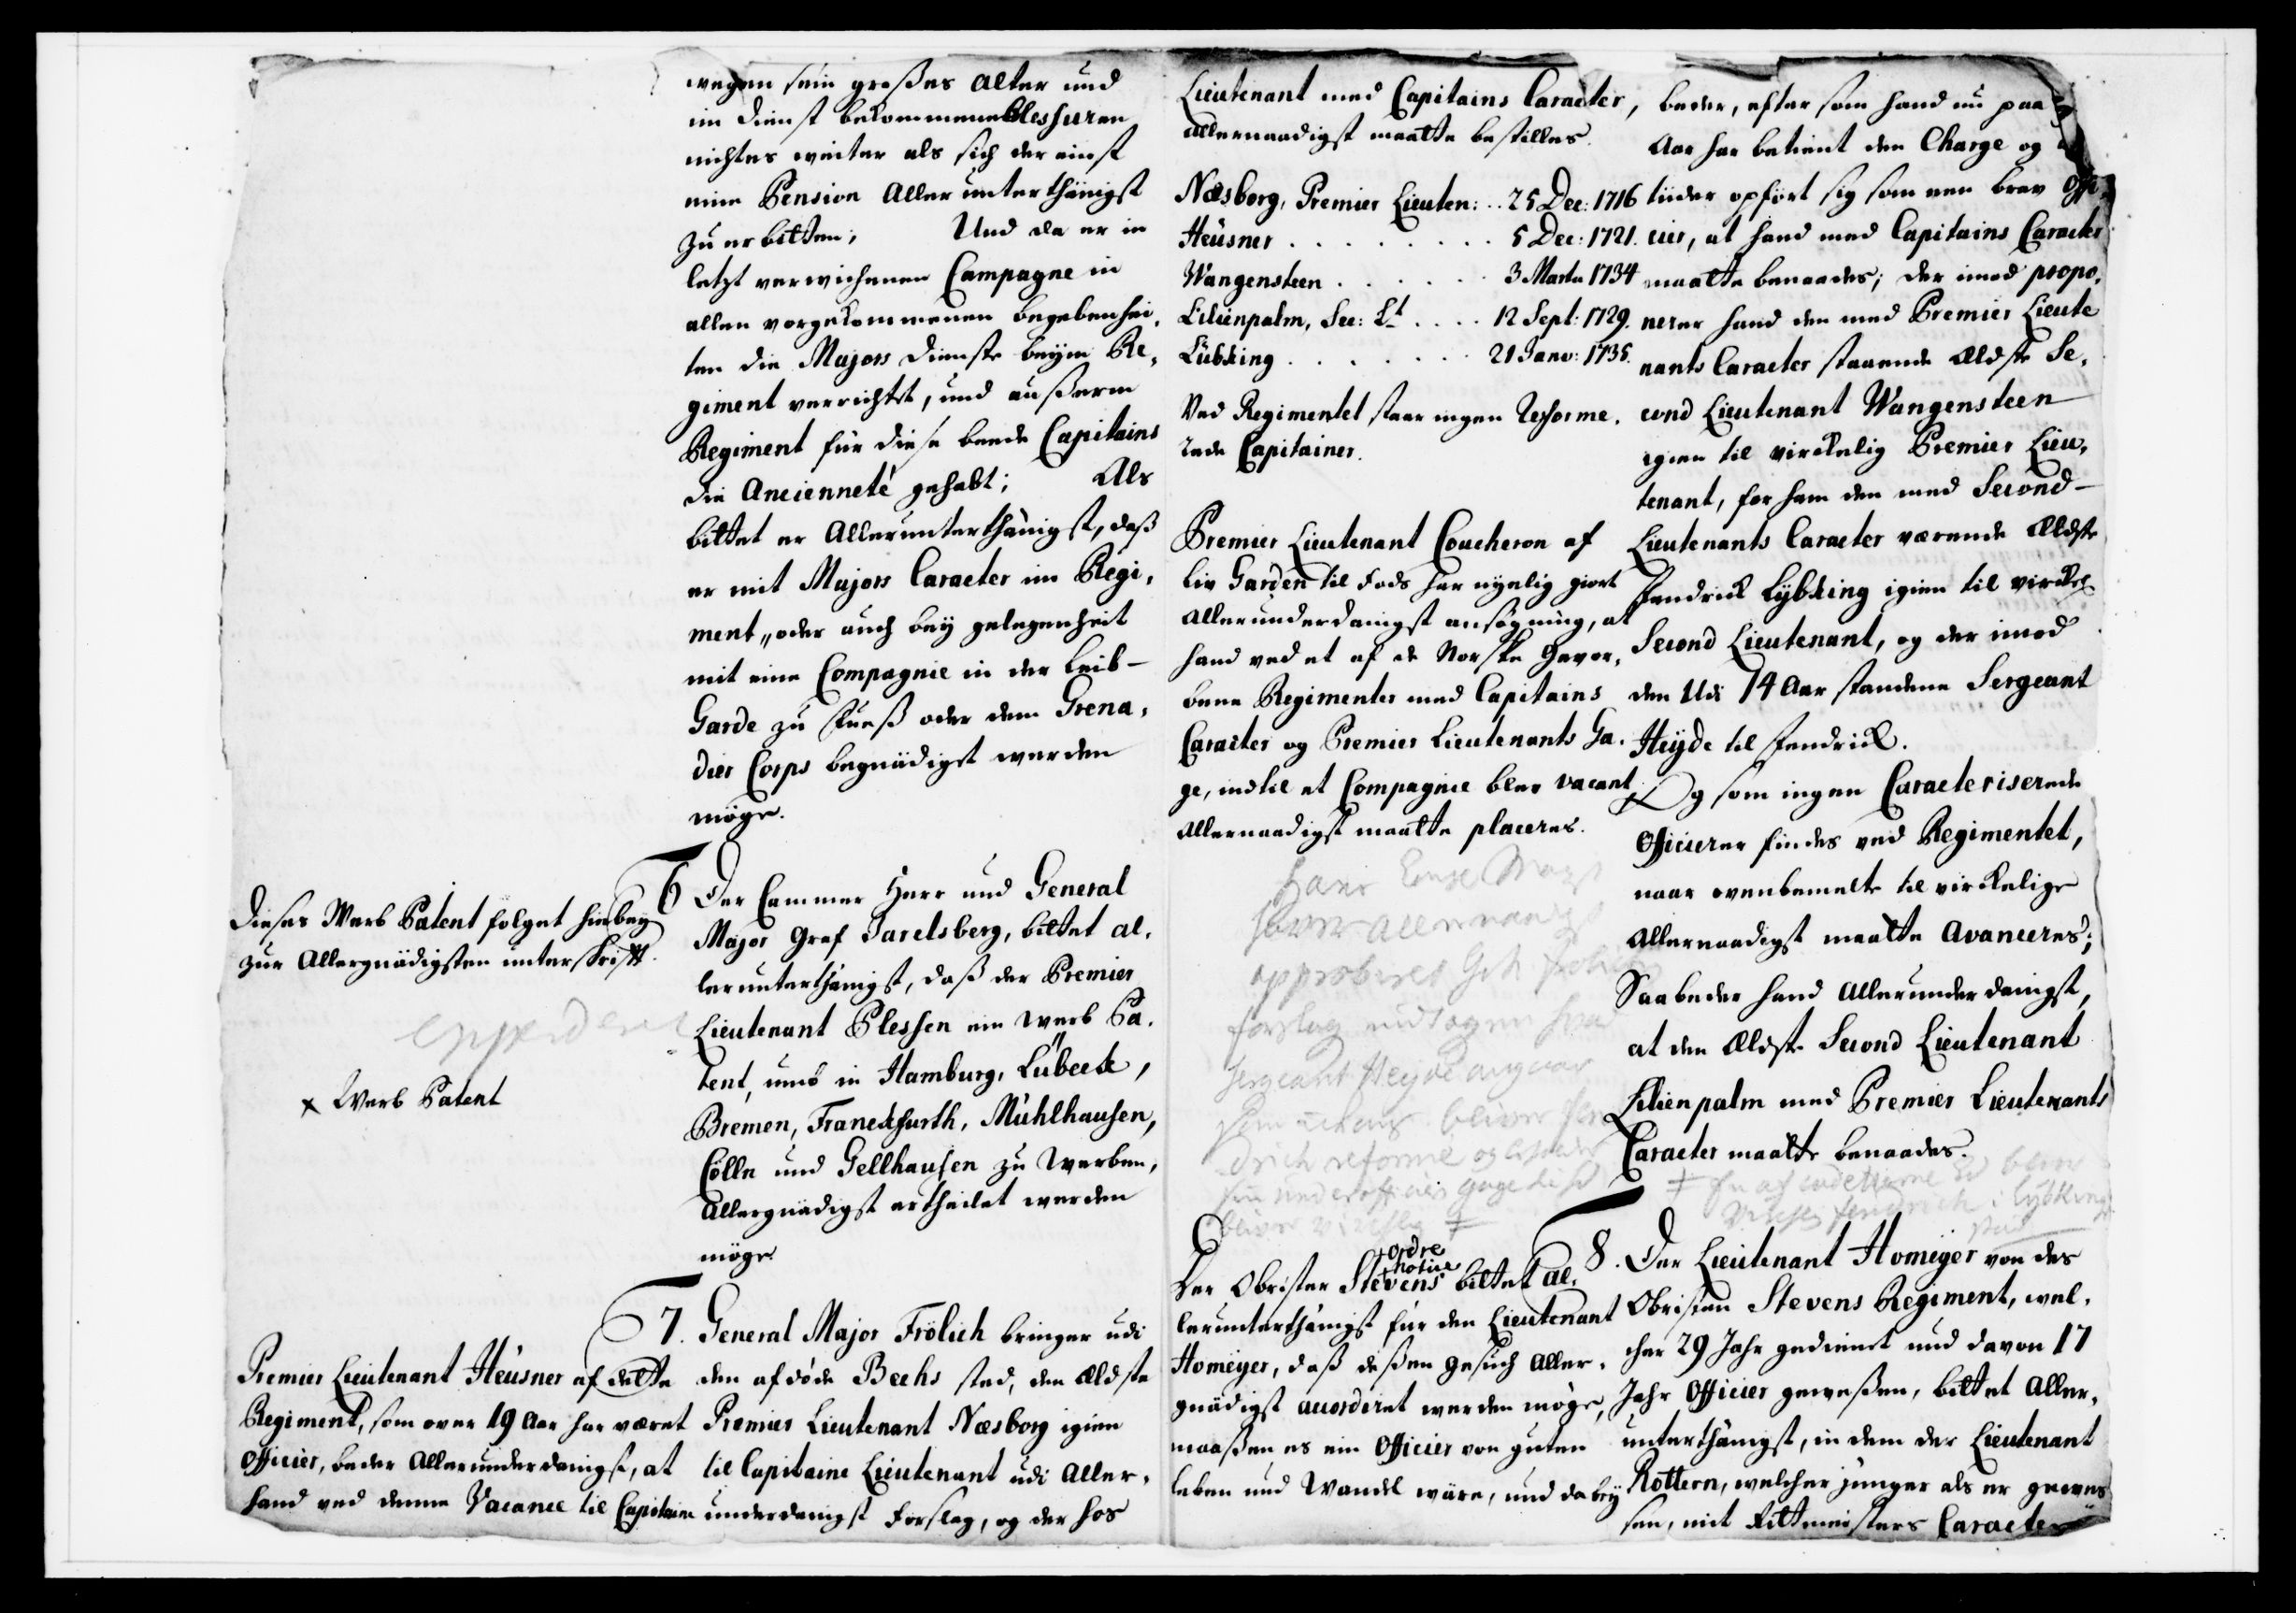 wegen sein großes Alter und
im Dienst bekommene Blessuren
nichtes weiter als sich dereinst
eine Pension Allerunterthänigst
zu erbitten; Und da er in
letzt verwichenen Campagne in
allen vorgekommenen begebenhei,
ten die Majors Dienste beym Re,
giment verrichtet, und außerm
Regiment für diese beede Capitains
die Ancienneté gehabt; Als
bittet er Allerunterthänigst, daß
er mit Majors Caracter im Regi,
ment, oder auch bey gelegenheit
mit eine Compagnie in der Leib-
Garde zu Fueß oder dem Grena,
dier Corps begnädiget werden
möge.
Dieses Werb Patent folget hiebey
zur Allergnädigsten unterschrifft.
x Werb Patent
6 Der Cammer Herr und General
Major Graf Jarelsberg, bittet al,
lerunterthänigst, daß der Premier
Lieutenant Plessen ein Werb Pa,
tent, umb in Hamburg, Lübeck,
Bremen, Franckfurth, Mühlhausen,
Cölln und Gellhausen zu werben,
Allergnädigst ertheilet werden
möge.
Premier Lieutenant Heüsner af dette
Regiment, som over 19 Aar har været
Officier, beder Allerunderdanigst, at
hand ved denne Vacance til Capitain
7. General Major Frölich bringer udi
den afdøde Bechs sted, den Ældste
Premier Lieutenant Næsborg igien
til Capitaine Lieutenant udi Aller,
underdanigst Forslag, og der hos
Lieutenant med Capitains Caracter,
Allernaadigst maatte bestilles.
Næsborg, Premier Lieuten: . . 25 Dec: 1716
Heüsner . . . . . . . . 5 Dec: 1721.
Wangensteen . . . . . 3 Martii 1734
Lilienpalm, Sec: Lt . . . . 12 Sept: 1729.
Lübking . . . . . . . 21 Janv: 1735.
Ved Regimentet staar ingen Reforme,
rede Capitainer.
Premier Lieutenant Coucheron af
Liv Garden til Fods har nyelig giort
Allerunderdanigst ansøgning, at
hand ved et af de Norske Gevor,
bene Regimenter med Capitains
Caracter og Premier Lieutenants Ga,
ge, indtil et Compagnie blev vacant,
Allernaadigst maatte placeres.
Hans Kongl Mayst
haver Allernaadigst
approberet G M Frölichs
forslag undtagen hvad
Sergeant Heyde angaar
som ickun bliver Fen
drich reformé og beholder
sin underofficiers gage
bliver
ordre
notice
Der Obrister Stevens bittet al,
lerunterthänigst für den Lieutenant
Homeyer, daß deßen gesuch Aller,
gnädigst accordiret werden möge,
maaßen es ein Officier von guten
leben und Wandel wäre, und dabey
beder, efter som hand nu paa
Aar har betient den Charge og
tiider opført sig som een brav Offi,
cier, at hand med Capitains Caracter
maatte benaades; der imod propo,
nerer hand den med Premier Lieute
nants Caracter staaende Ældste Se,
cond Lieutenant Wangensteen
igien til virckelig Premier Lieu,
tenant, for ham den med Second-
Lieutenants Caracter værende Ældste
Fendrick Lybking igien til virckel:
Second Lieutenant, og der imod
den udi 14 Aar standene Sergeant
Heyde til Fendrick.
Og som ingen Caracteriserede
Officierer findes ved Regimentet,
naar ovenbemelte til virckelige
Allernaadigst maatte Avanceres;
Saa beder hand Allerunderdanigst,
at den Ældste Second Lieutenant
Lilienpalm med Premier Lieutenants
Caracter maatte benaades.
fendrich i lybkings
sted
8. Der Lieutenant Homeyer von des
Obristen Stevens Regiment, wel,
cher 29 Jahr gedienet und davon 17
Jahr Officier geweßen, bittet Aller,
unterthänigst, in dem der Lieutenant
Rottern, welcher jünger als er gewes
sen, mit Rittmeisters Caracter